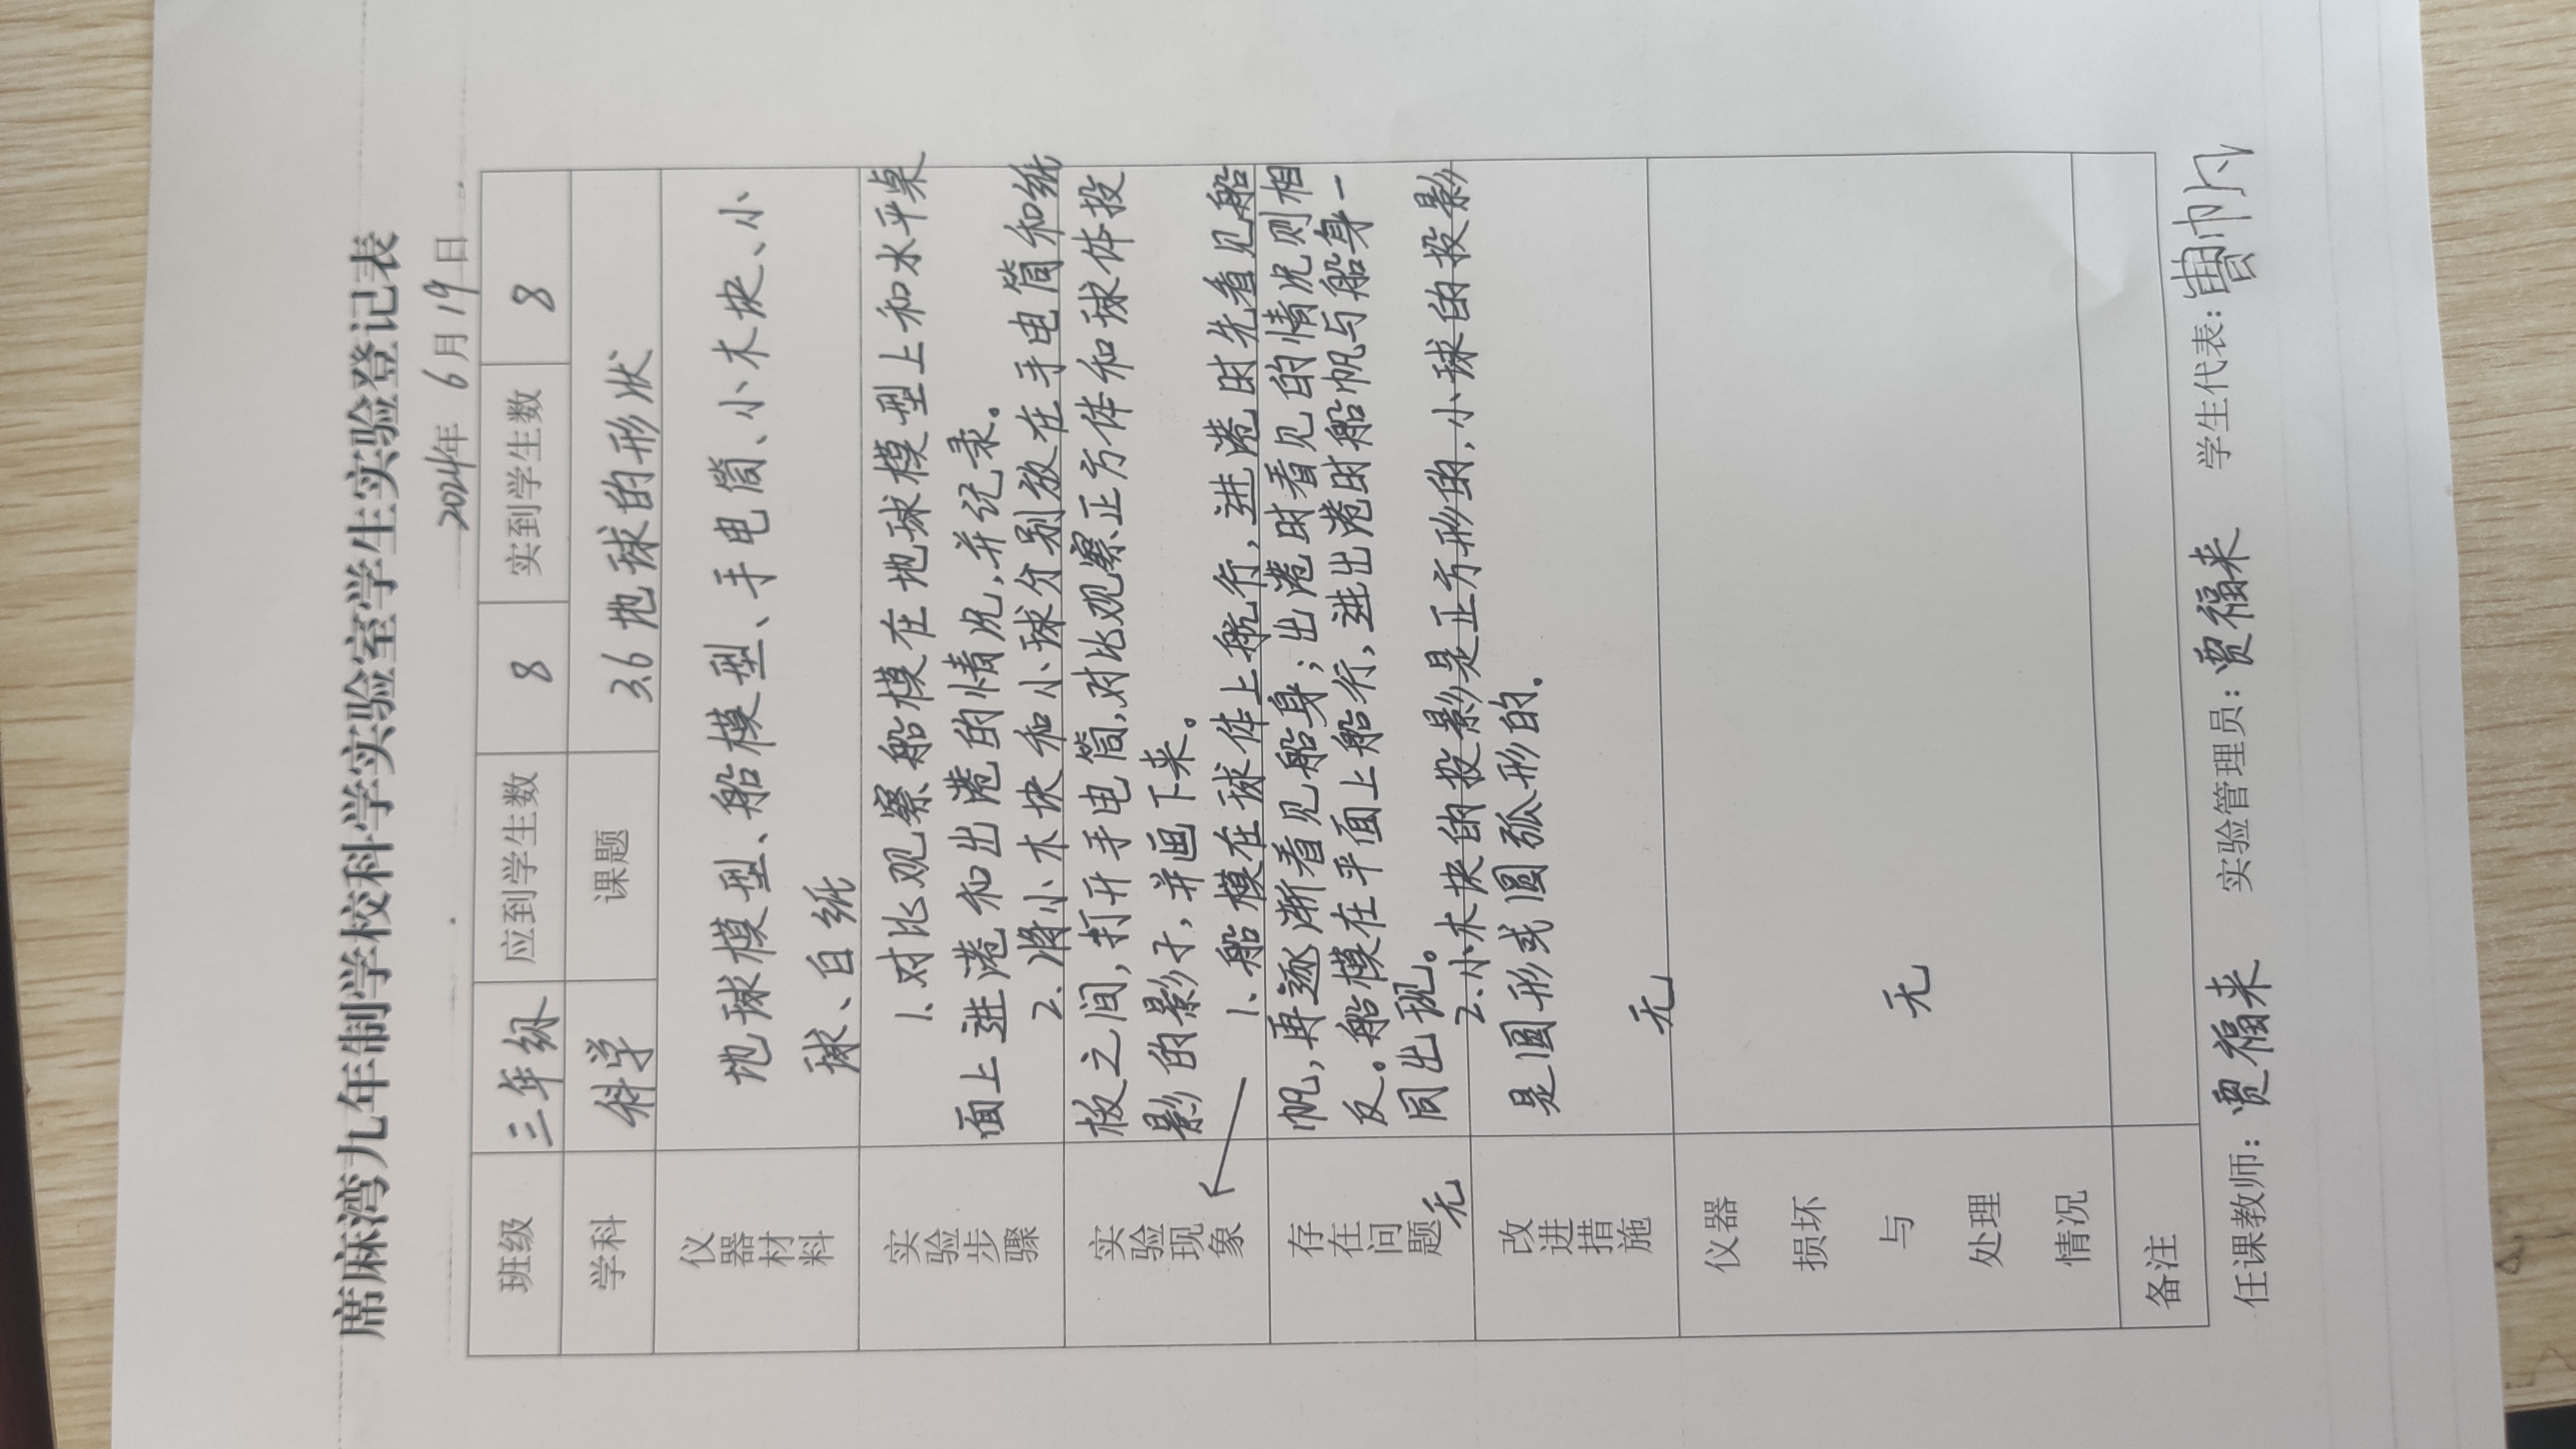 席麻湾九年制学校科学实验室学生实验登记表
2024年 6月19日
班级 三年级 应到学生数 8 实到学生数 8
学科 科学 课题 3.6 地球的形状
仪器材料 地球模型、船模型、手电筒、小木块、小
球、白纸
实验步骤 1、对比观察船模在地球模型上和水平桌
面上进港和出港的情况,并记录。
2、将小木块和小球分别放在手电筒和纸
板之间,打开手电筒,对比观察正方体和球体投
影的影子,并画下来。
实验现象 1、船模在球体上航行,进港时先看见船
帆,再逐渐看见船身;出港时看见的情况则相
反。船模在平面上船行,进出港时船帆与船身一
同出现。
2.小木块的投影是正方形的,小球的投影
是圆形或圆弧形的.
存在问题 无
改进措施 无
仪器
损坏
与 无
处理
情况
备注
任课教师: 贾福来 实验管理员: 贾福来 学生代表: 曹帅